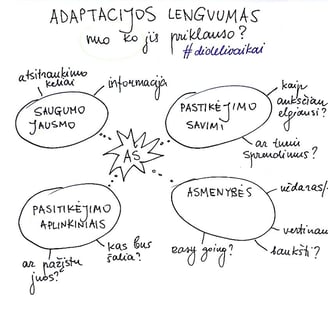 ADAPTACIJOS LENGVUMAS
nuo ko jis priklauso?
#dideliovaikai
atsitraukimo
keliai
informacija
SAUGUMO
JAUSMO
PASTIKĖJIMO
SAVIMI
kaip
anksčiau
elgiausi?
ar turiu
sprendimus?
AŠ
PASITIKĖJIMO
APLINKINIAIS
ar pažįstu
juos?
kas bus
šalia?
ASMENYBĖS
uždaras/
vertinau
aukšti?
easy going?